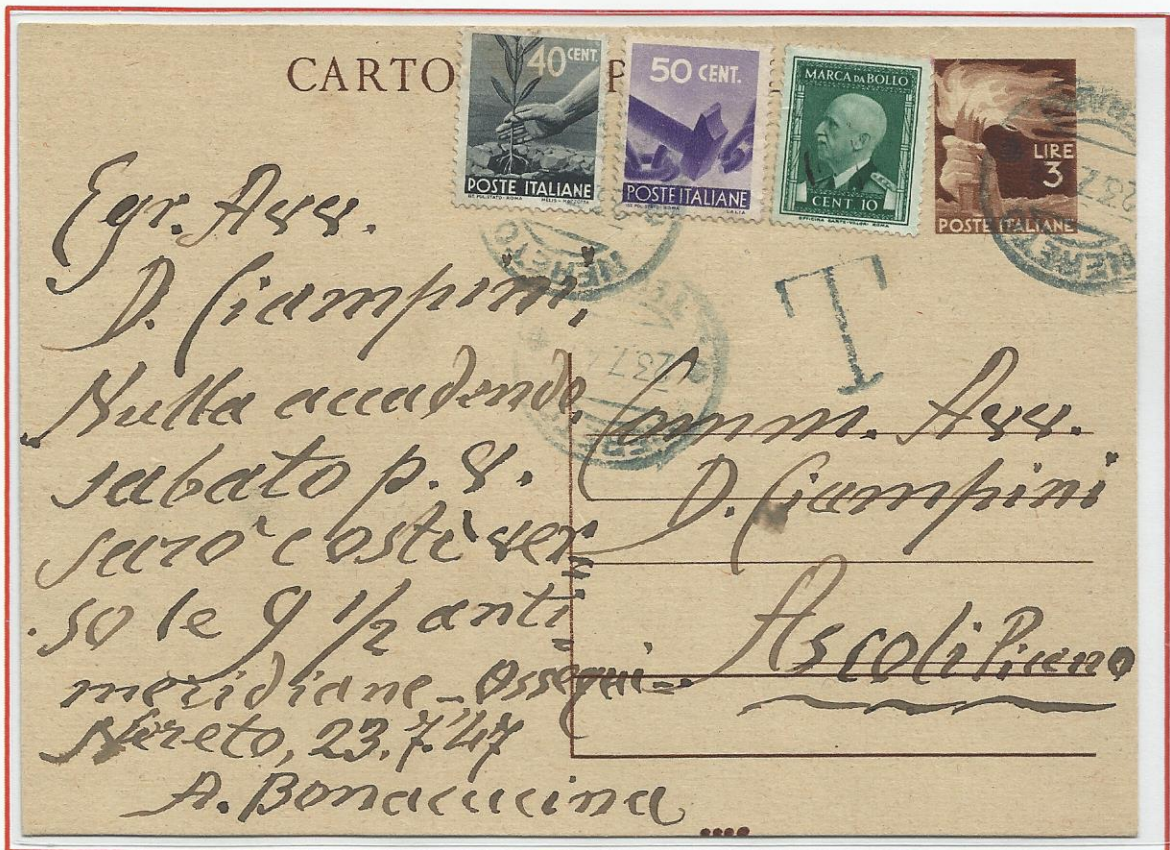 CARTO P
40 CENT.
POSTE ITALIANE
50 CENT.
POSTE ITALIANE
MARCA DA BOLLO
CENT 10
LIRE
3
POSTE ITALIANE
T
NERETO
23.7
Egr. Avv.
D. Ciampini,
Nulla accadendo,
sabato p. v.
sarò costì ver
so le 9 1/2 anti
meridiane – Ossequi –
Nereto, 23.7.47
A. Bonaccucina
Comm. Avv.
D. Ciampini
Ascoli Piceno